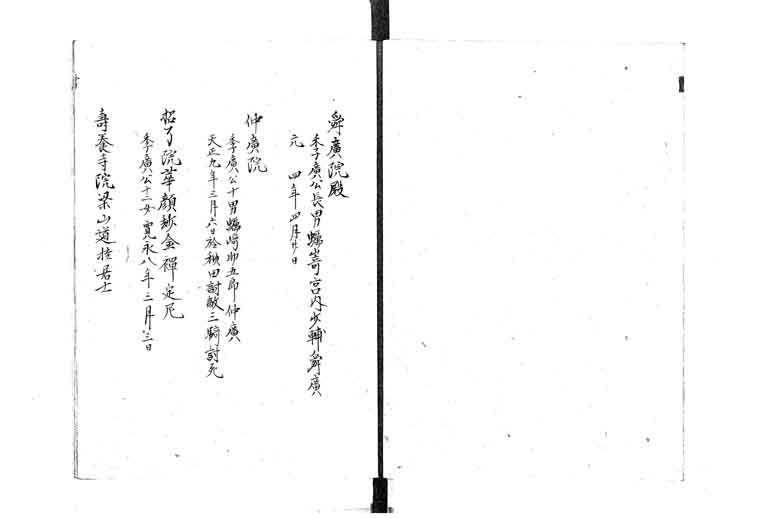 舜廣院殿
季廣公長男蠣崎宮内少輔舜廣
元 四年四月廿日
仲廣院
季廣公十男蠣崎卯五郎仲廣
天正九年三月六日於秋田討敵三騎討死
松了院華顔妙金禅定尼
季廣公十二女寛永八年三月三日
壽養寺院梁山道桂居士